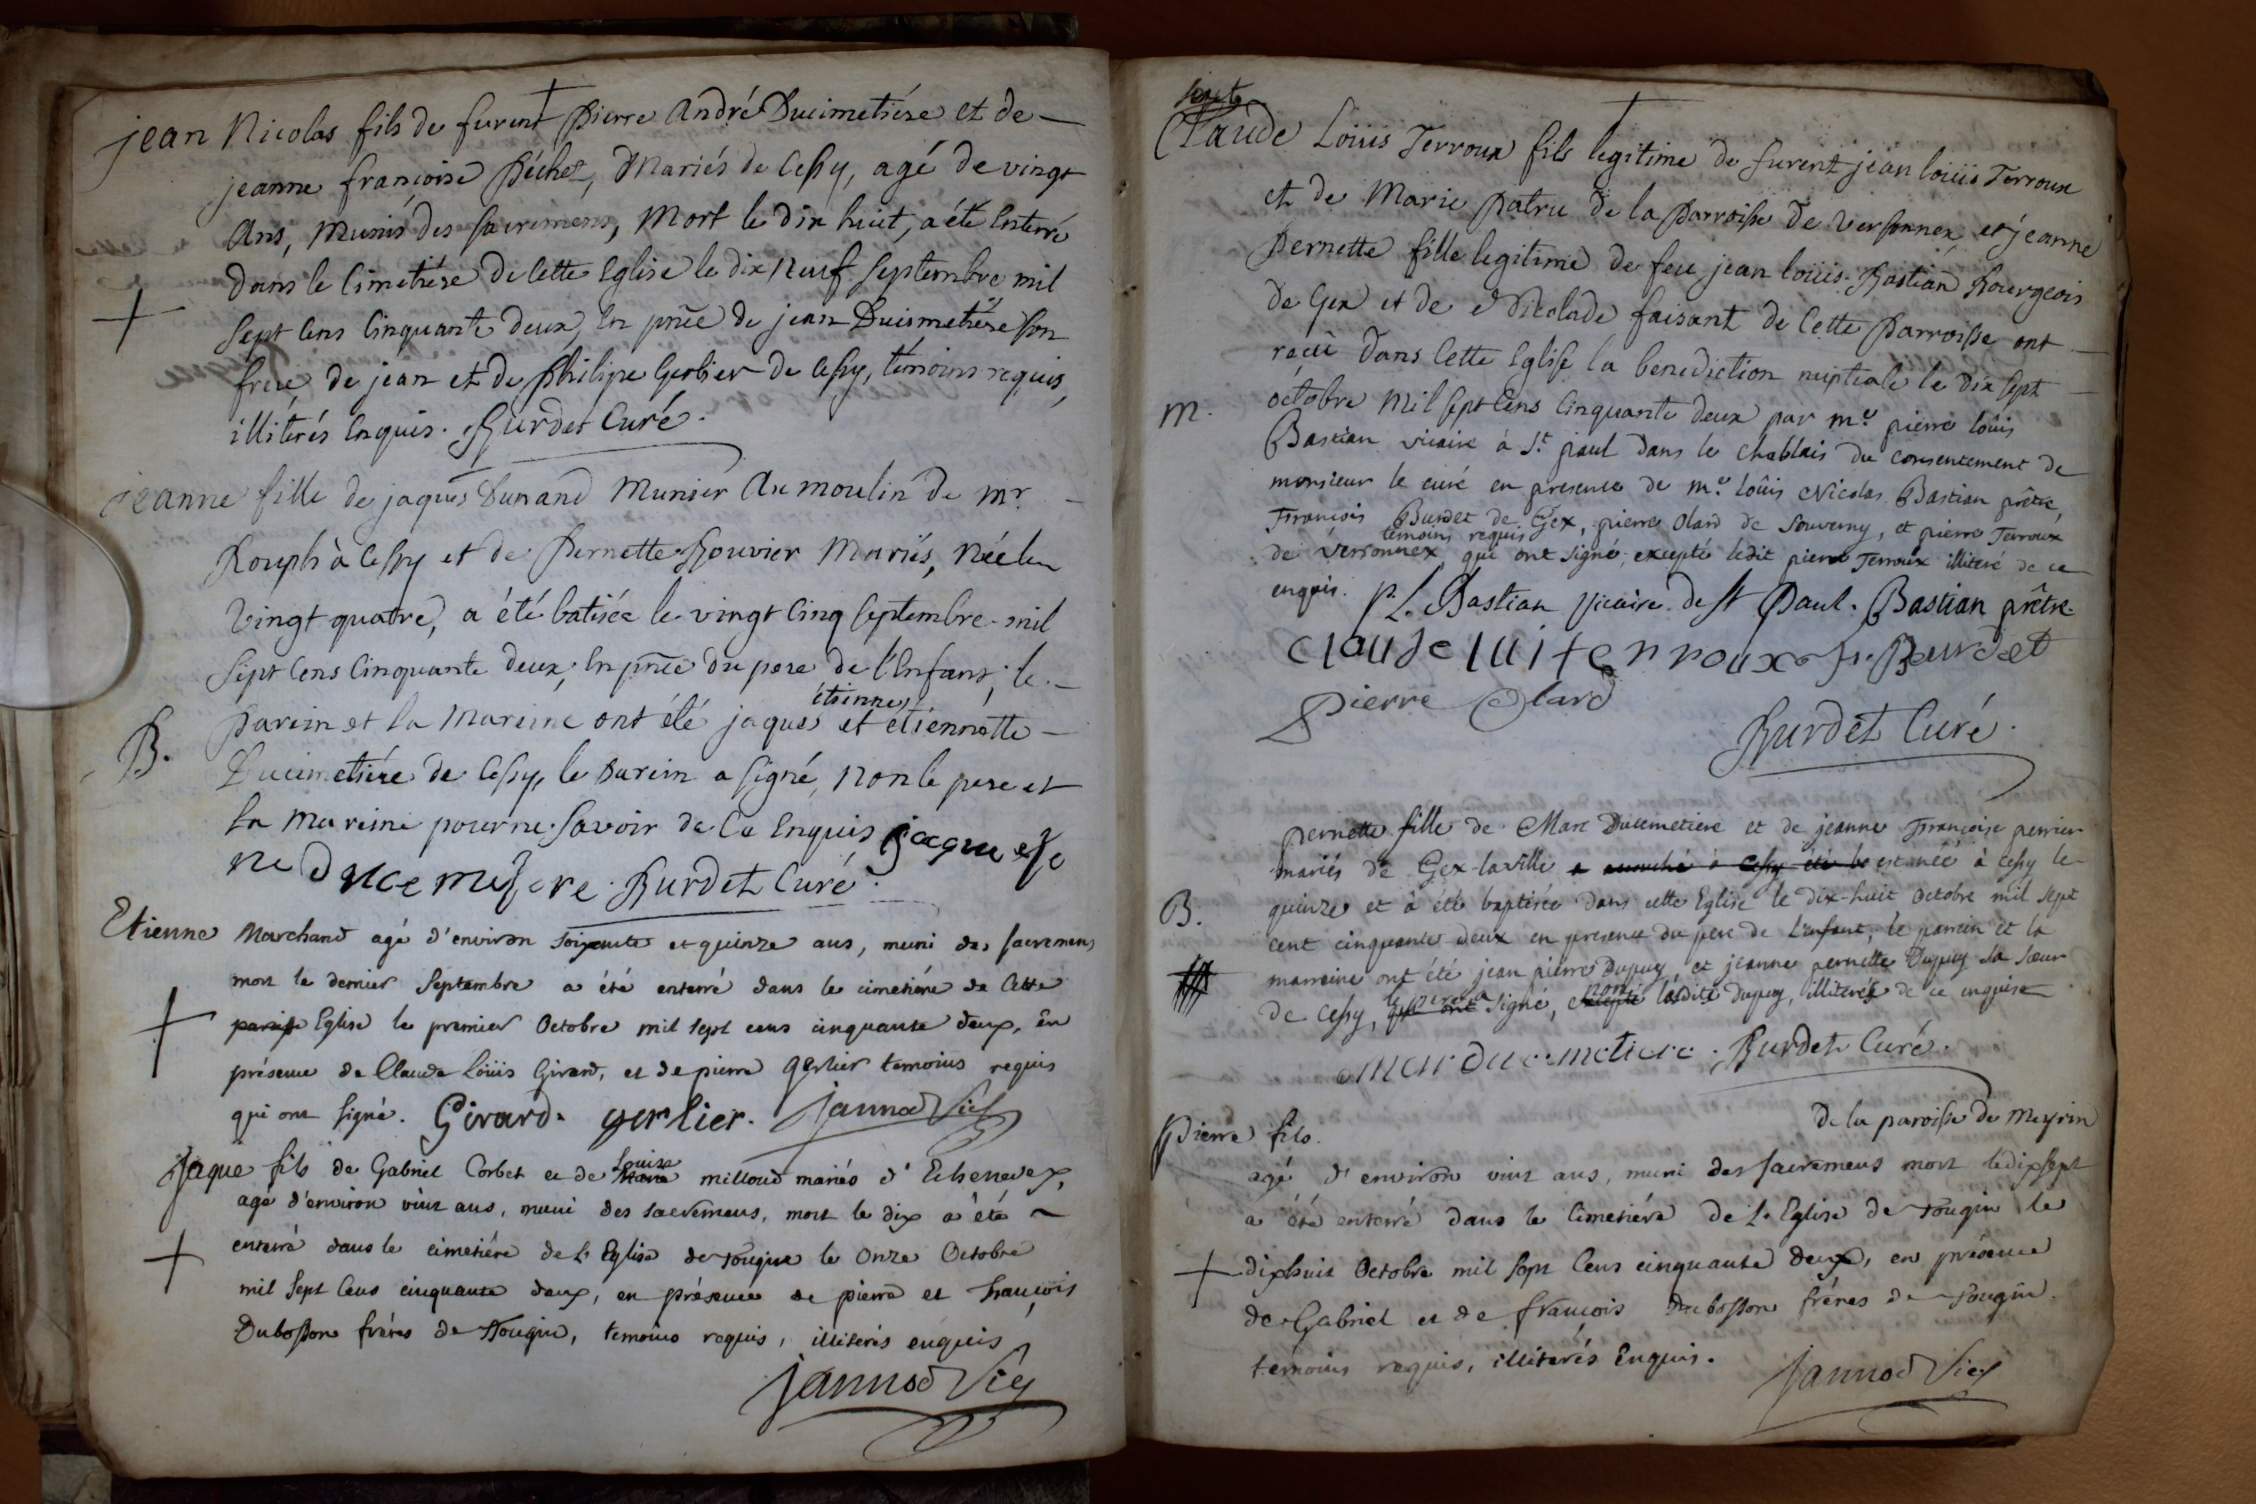 jean Nicolas fils de furent Pierre André Ducimetiére et de
jeanne francoise Péchet, Mariés de Cessy, agé de vingt
Ans, Munis des sacremens, Mort le dix huit, a été Enterré
dans le Cimetiére de Cette Eglise le dix neuf Septembre mil
Sept Cens Cinquante deux, En pnce de jean Ducimetiére son
frere, de jean et de Philipe Gerlier de Cessy, témoins requis,
illiterés Enquis. Burdet Curé.
jeanne fille de jaques Dunand Munier Au moulin de mr.
Rouph à Cessy et de Pernette Bouvier Mariés, Née le
vingt quatre, a été batisée le vingt Cinq Septembre mil
Sept Cens Cinquante deux, En pnce du pere de l'Enfant, le
étienne
B. Parein et la Mareine ont été jaques et etiennette
Ducimetiére de Cessy, le Parein a signé, Non le pere et
la Mareine pour ne savoir de Ce Enquis jaque etie
ne ducemetiere. Burdet Curé.
Etienne Marchand agé d'environ soixante et quinze ans, muni des sacremens
mort le dernier Septembre a été enterré dans le cimetiére de Cette
paroisse Eglise le premier Octobre mil sept cens cinquante deux, En
présence de Claude Loüis Girard, et de pierre Gerlier temoins requis
qui ont signé. Girard. gerlier. Jannod Vic
Louise
Jaque fils de Gabriel Corbet et de Marie milloud mariés d'Echenevex,
agé d'environ vint ans, muni des sacremens, mort le dix a été
enterré dans le cimetiére de L'Eglise de Tougin le Onze Octobre
mil Sept Cens cinquante deux, en présence de pierre et François
Dubosson fréres de Tougin, temoins requis, illiterés enquis
Jannod Vic
Claude Loüis Terroux fils legitime de furent jean loüis Terroux
et de Marie Patru de la Parroisse de Versonnex et jeanne
Pernette fille legitime de feu jean loüis Bastian Bourgeois
de Gex et de Nicolade faisant de Cette Parroisse ont
reçû dans Cette Eglise la benediction nuptiale le dix sept
M. octobre Mil sept Cens Cinquante deux par me. pierre loüis
Bastian vicaire à St. paul dans le Chablais du consentement de
monsieur le curé en presence de me. loüis Nicolas Bastian prêtre,
François Burdet de Gex, pierre Olard de Sauverny, et pierre Terroux
temoins requis
de Versonnex qui ont signé, excepté ledit pierre Terroux illiteré de ce
enquis. P. L. Bastian Vicaire de St Paul. Bastian prêtre
claude luiterroux fr. Beurdet
Pierre Olard
Burdet Curé.
pernette fille de Marc Ducimetiere et de jeanne Françoise perrier
mariés de Gex-la ville est anéé à Cessy le
B. quinze et à été baptisée dans cette Eglise le dix-huit octobre mil sept
cent cinquante deux en presence du pere de l'enfant, le parrein et la
marraine ont été jean pierre Dupuy, et jeanne pernette Dupuy sa sœur
le pere a non
de Cessy, qui ont signé, excepté lesdits Dupuy, illiterés de ce enquis
marc ducemetiere. Burdet Curé.
Pierre fils. de la paroisse de Meyrin
agé d'environ vint ans, muni des sacremens mort le dix sept
a été enterré dans le Cimetiére de L'Eglise de Tougin le
dixhuit Octobre mil sept Cens cinquante deux, en présence
de Gabriel et de François Dubosson fréres de Tougin.
temoins requis, illiterés Enquis.
Jannod Vic